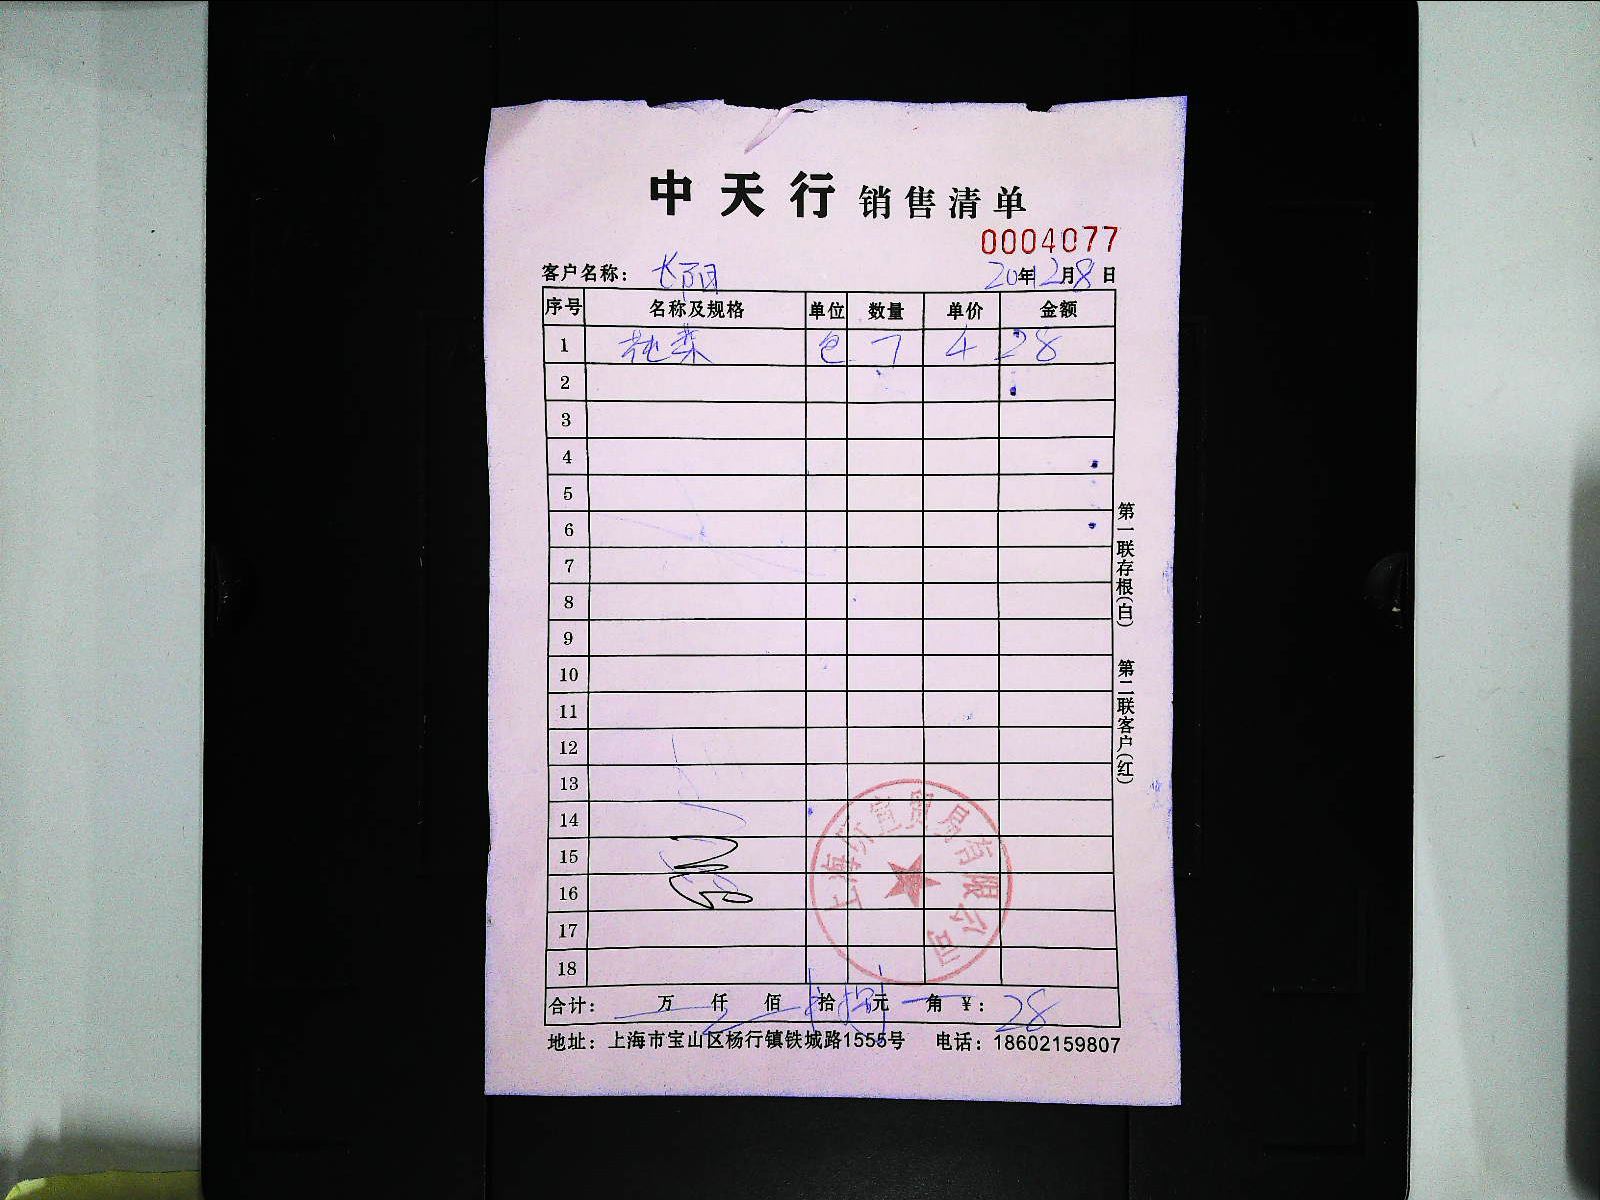 中天行 销售清单
0004077
客户名称： 长阳 20年12月8日
序号 名称及规格 单位 数量 单价 金额
1 包 7 4 28
2
3
4
5
6
7
8
9
10
11
12
13
14
15
16
17
18
合计： 万 仟 佰 拾 元 角 ¥： 28
地址：上海市宝山区杨行镇铁城路1555号 电话：18602159807
第一联存根(白) 第二联客户(红)
宜贸易有限公司